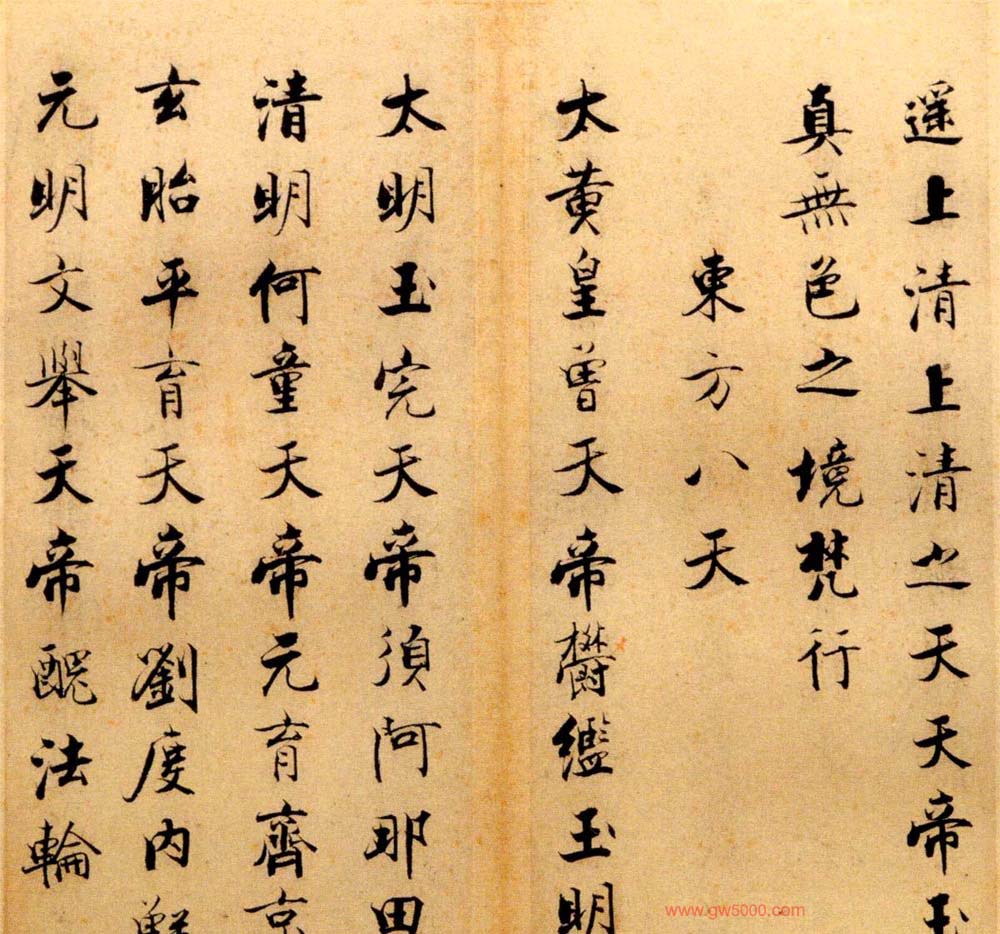 遥上清上清之天天帝玉
真無色之境梵行
東方八天
太黄皇曾天帝欝繿玉明
太明玉完天帝湏阿那田
清明何童天帝元育齊京
玄胎平育天帝劉度内鮮
元明文舉天帝醜法輪
www.gw5000.com